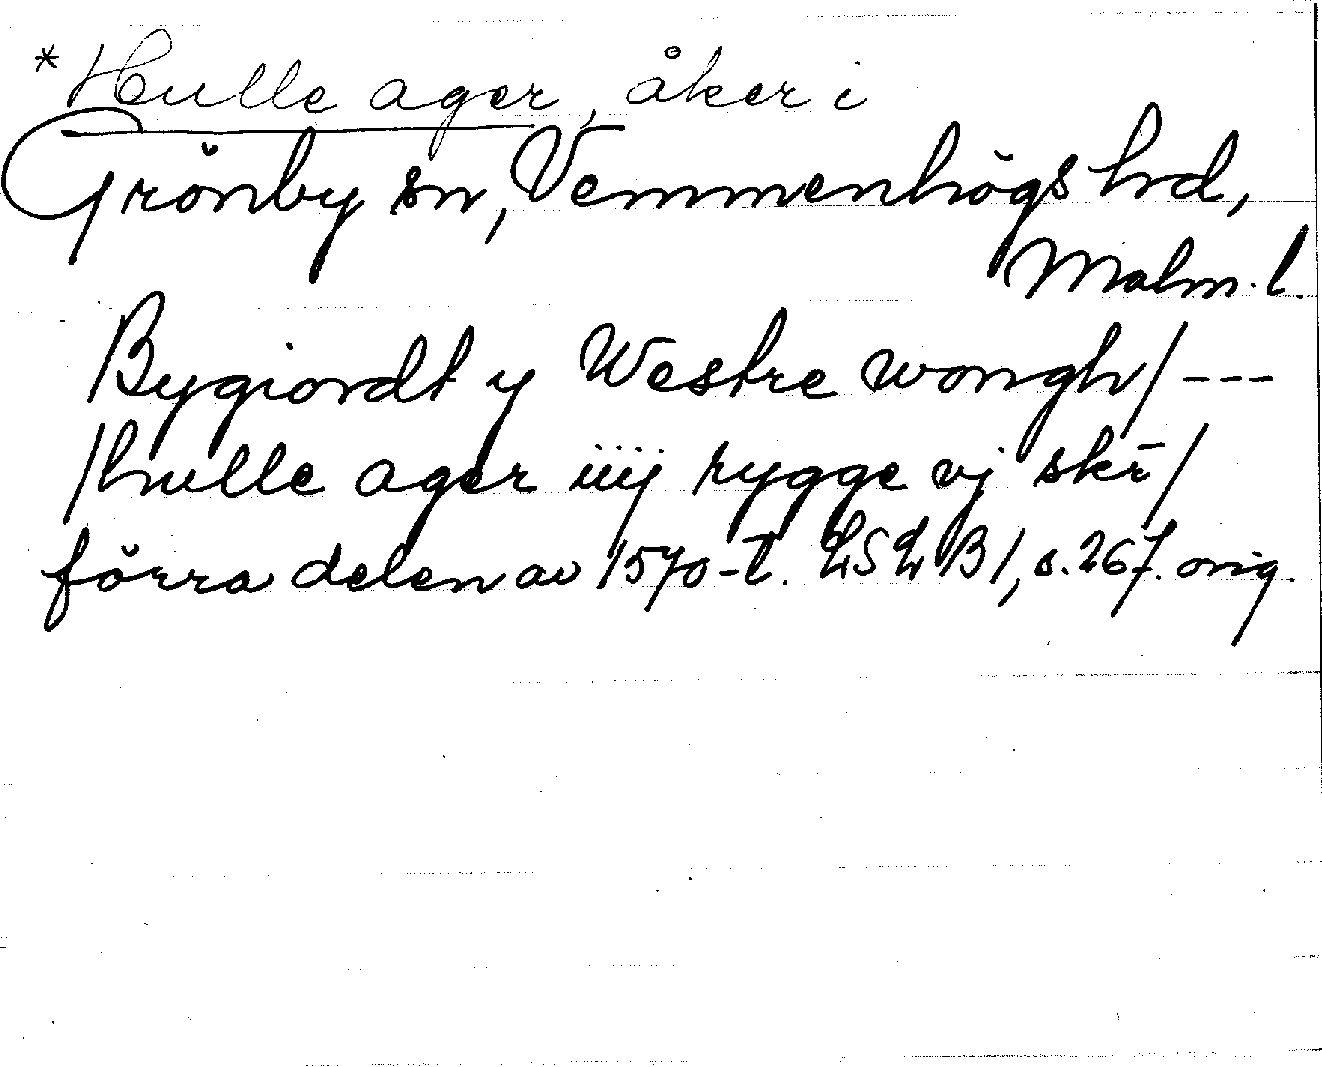 *Hulle ager, åker i
Grönby sn, Vemmenhögs hd,
Malm. l.
Bygiordt y Westre wongh/---
/hulle ager iiij rygge vj skr̄/
förra delen av 1570-t. LSLB1, s. 267. orig.